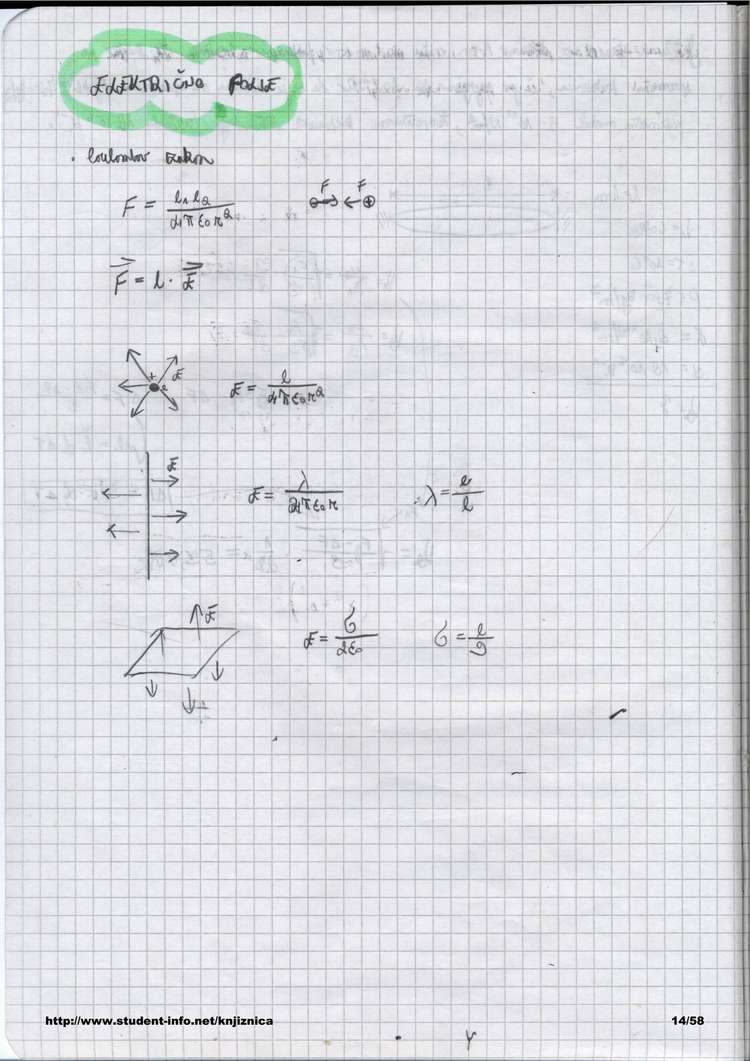 ELEKTRIČNO POLJE
• Coulombov zakon
F = e₁ e₂ / 4πε₀r²
F F
F⃗ = e · E⃗
+ e E⃗
E = e / 4πε₀r²
E⃗
E = λ / 2πε₀r λ = e / l
E⃗
E = σ / 2ε₀ σ = e / S
http://www.student-info.net/knjiznica 14/58